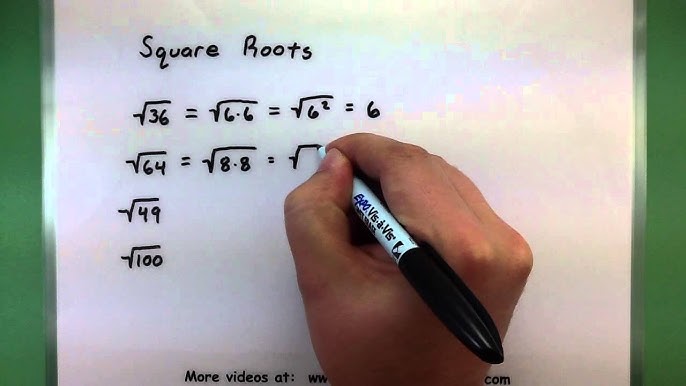 Square Roots
√36 = √6·6 = √6² = 6
√64 = √8·8 = √
√49
√100
Expo Vis-à-Vis
More videos at: www.